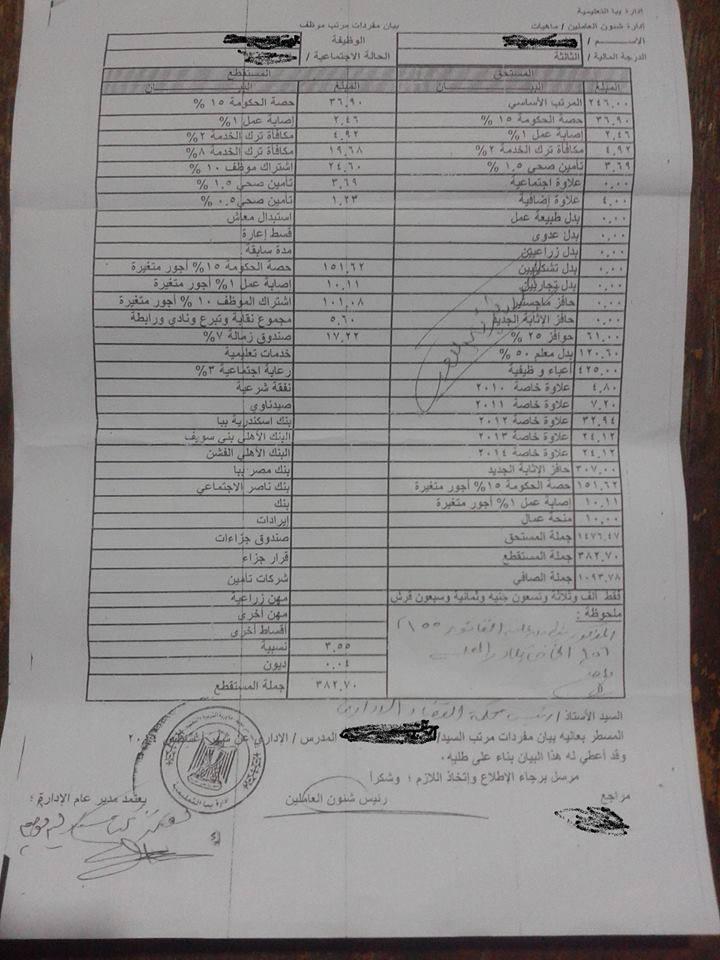 إدارة ببا التعليمية
إدارة شئون العاملين / ماهيات
بيان مفردات مرتب موظف
الاســـم /
الوظيفة
الدرجة المالية / الثالثة
الحالة الاجتماعية /
المستحق
المبلغ البيـــــــان
٢٤٦,٠٠ المرتب الأساسي
٣٦,٩٠ حصة الحكومة ١٥ %
٢,٤٦ إصابة عمل ١%
٤,٩٢ مكافأة ترك الخدمة ٢%
٣,٦٩ تأمين صحي ١,٥ %
٠,٠٠ علاوة اجتماعية
٤,٠٠ علاوة إضافية
٠,٠٠ بدل طبيعة عمل
٠,٠٠ بدل عدوى
٠,٠٠ بدل زراعيين
٠,٠٠ بدل تشكيليين
٠,٠٠ بدل تجاريين
٠,٠٠ حافز ماجستير
٠,٠٠ حافز الاثابة الجديد
٦١,٠٠ حوافز ٢٥ %
١٢٠,٦٠ بدل معلم ٥٠ %
٤٢٥,٠٠ أعباء و ظيفية
٤,٨٠ علاوة خاصة ٢٠١٠
٧,٢٠ علاوة خاصة ٢٠١١
٣٢,٩٤ علاوة خاصة ٢٠١٢
٢٤,١٢ علاوة خاصة ٢٠١٣
٢٤,١٢ علاوة خاصة ٢٠١٤
٣٠٧,٠٠ حافز الاثابة الجديد
١٥١,٦٢ حصة الحكومة ١٥% أجور متغيرة
١٠,١١ إصابة عمل ١% أجور متغيرة
١٠,٠٠ منحة عمال
١٤٧٦,٤٧ جملة المستحق
٣٨٢,٧٠ جملة المستقطع
١٠٩٣,٧٨ جملة الصافي
فقط ألف وثلاثة وتسعون جنيه وثمانية وسبعون قرش
ملحوظة :
المستقطع
المبلغ البيـــــــان
٣٦,٩٠ حصة الحكومة ١٥ %
٢,٤٦ إصابة عمل ١%
٤,٩٢ مكافأة ترك الخدمة ٢%
١٩,٦٨ مكافأة ترك الخدمة ٨%
٢٤,٦٠ اشتراك موظف ١٠ %
٣,٦٩ تأمين صحي ١,٥ %
١,٢٣ تأمين صحي ٠,٥ %
استبدال معاش
قسط إعارة
مدة سابقة
١٥١,٦٢ حصة الحكومة ١٥% أجور متغيرة
١٠,١١ إصابة عمل ١% أجور متغيرة
١٠١,٠٨ اشتراك الموظف ١٠ % أجور متغيرة
٥,٦٠ مجموع نقابة وتبرع ونادي ورابطة
١٧,٢٢ صندوق زمالة ٧%
خدمات تعليمية
رعاية اجتماعية ٣%
نفقة شرعية
صيدناوي
بنك اسكندرية ببا
البنك الأهلي بنى سويف
البنك الأهلي الفشن
بنك مصر ببا
بنك ناصر الاجتماعي
بنك
إيرادات
صندوق جزاءات
قرار جزاء
شركات تأمين
مهن زراعية
مهن أخرى
أقساط أخرى
٣,٥٥ نسبية
٠,٠٤ ديون
٣٨٢,٧٠ جملة المستقطع
السيد الأستاذ /
المسطر بعاليه بيان مفردات مرتب السيد/ المدرس / الإداري عن شهر
وقد أعطي له هذا البيان بناء على طلبه.
مرسل برجاء الإطلاع وإتخاذ اللازم ؛ وشكراً
مراجع
رئيس شئون العاملين
يعتمد مدير عام الإدارة ؛
إدارة ببا التعليمية